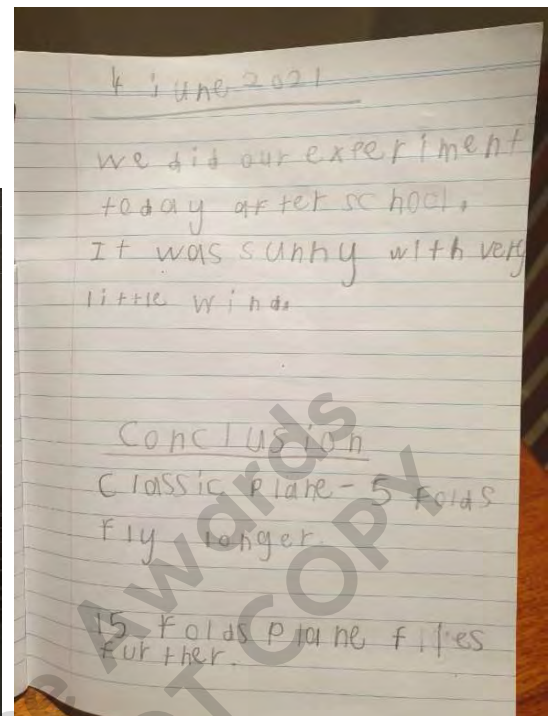 4 june 2021
We did our experiment
today after school.
It was sunny with very
little wind.
Conclusion
Classic plane - 5 folds
fly longer.
15 folds plane flies
further.
Awards
OT COPY